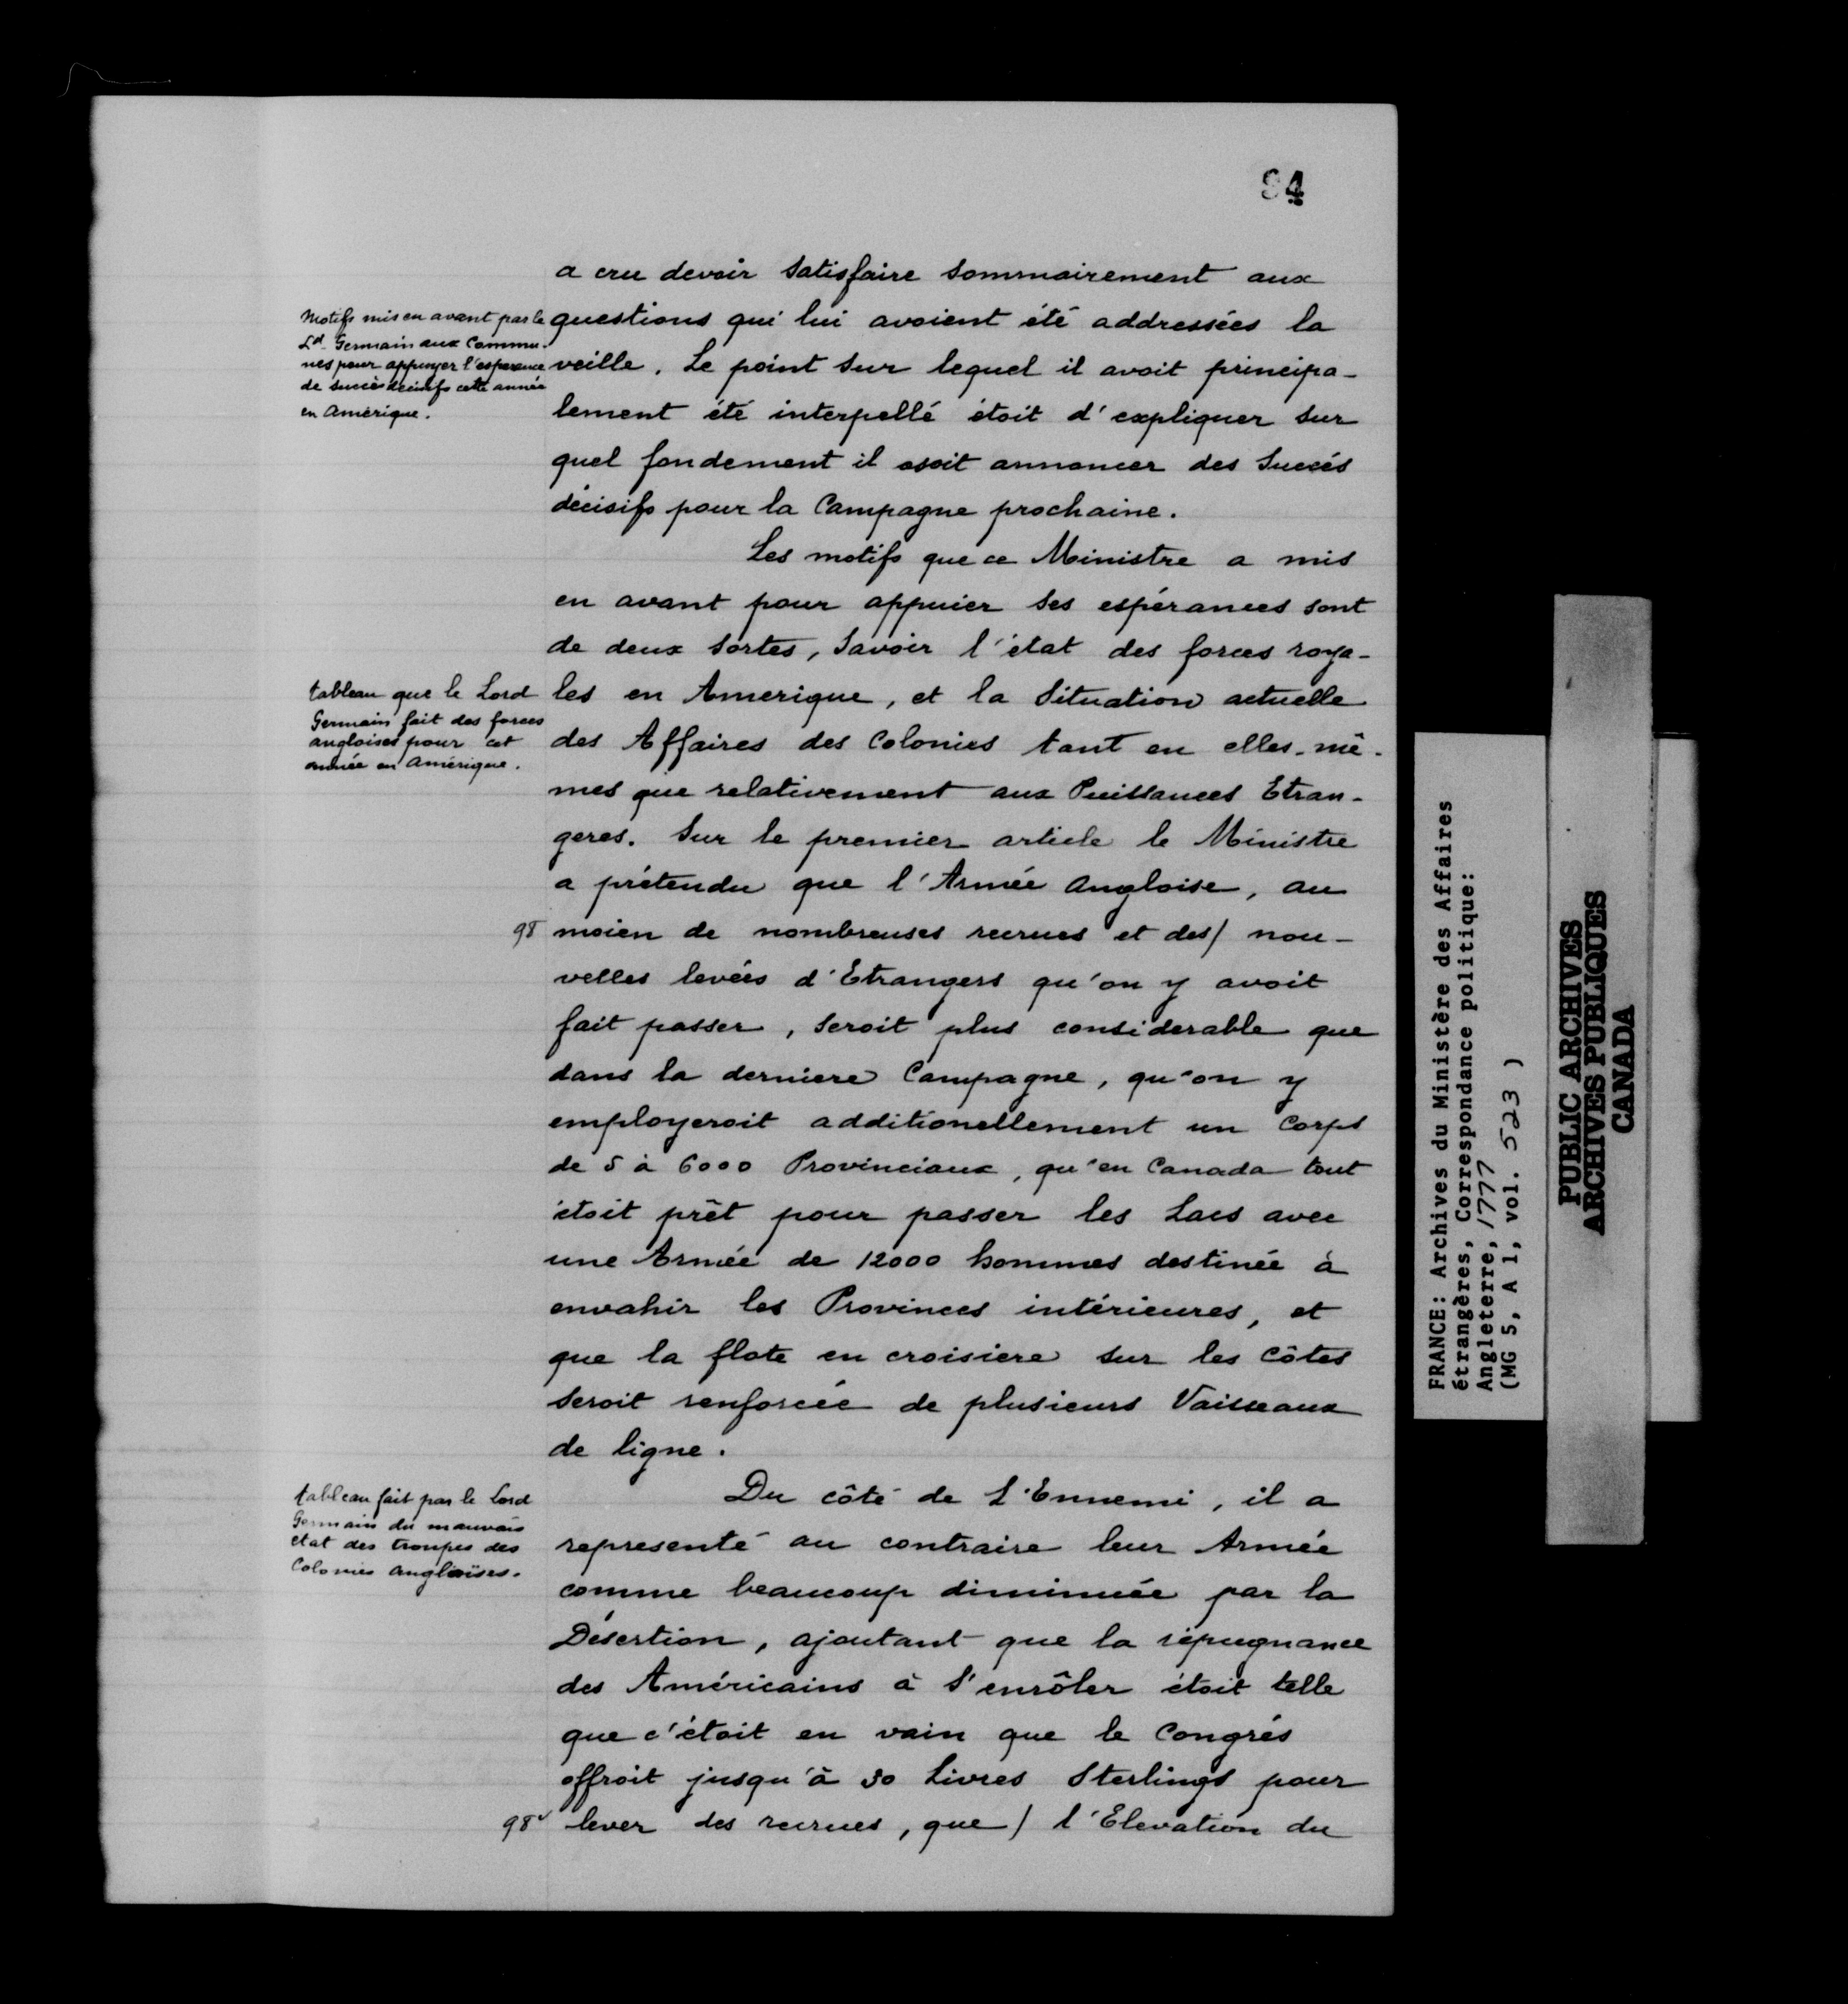 94
a cru devoir satisfaire sommairement aux
Motifs mis en avant par le
Ld. Germain aux Commu-
nes pour appuyer l'esperance
de succès décisifs cette année
en Amérique.
questions qui lui avoient été addressées la
veille. Le point sur lequel il avoit principa-
lement été interpellé étoit d'expliquer sur
quel fondement il osoit annoncer des Succés
décisifs pour la Campagne prochaine.
Les motifs que ce Ministre a mis
en avant pour appuier ses espérances sont
de deux sortes, Savoir l'état des forces roya-
tableau que le Lord
Germain fait des forces
angloises pour cet
année en Amérique.
les en Amerique, et la Situation actuelle
des Affaires des Colonies tant en elles-mê-
mes que relativement aux Puissances Etran-
geres. Sur le premier article le Ministre
a prétendu que l'Armée Angloise, au
98 moien de nombreuses recrues et des/ nou-
velles levées d'Etrangers qu'on y avoit
fait passer, seroit plus considerable que
dans la derniere Campagne, qu'on y
employeroit additionellement un Corps
de 5 à 6000 Provinciaux, qu'en Canada tout
étoit prêt pour passer les Lacs avec
une Armée de 12000 hommes destinée à
envahir les Provinces intérieures, et
que la flote en croisiere sur les Côtes
seroit renforcée de plusieurs Vaisseaux
de ligne.
tableau fait par le Lord
Germain du mauvais
etat des troupes des
Colonies Angloises.
Du côté de L'Ennemi, il a
representé au contraire leur Armée
comme beaucoup diminuée par la
Désertion, ajoutant que la répugnance
des Américains à S'enrôler étoit telle
que c'étoit en vain que le Congrés
offroit jusqu'à 30 Livres Sterlings pour
98v lever des recrues, que / l'Elevation du
FRANCE: Archives du Ministère des Affaires
étrangères, Correspondance politique:
Angleterre, 1777
(MG 5, A 1, vol. 523 )
PUBLIC ARCHIVES
ARCHIVES PUBLIQUES
CANADA